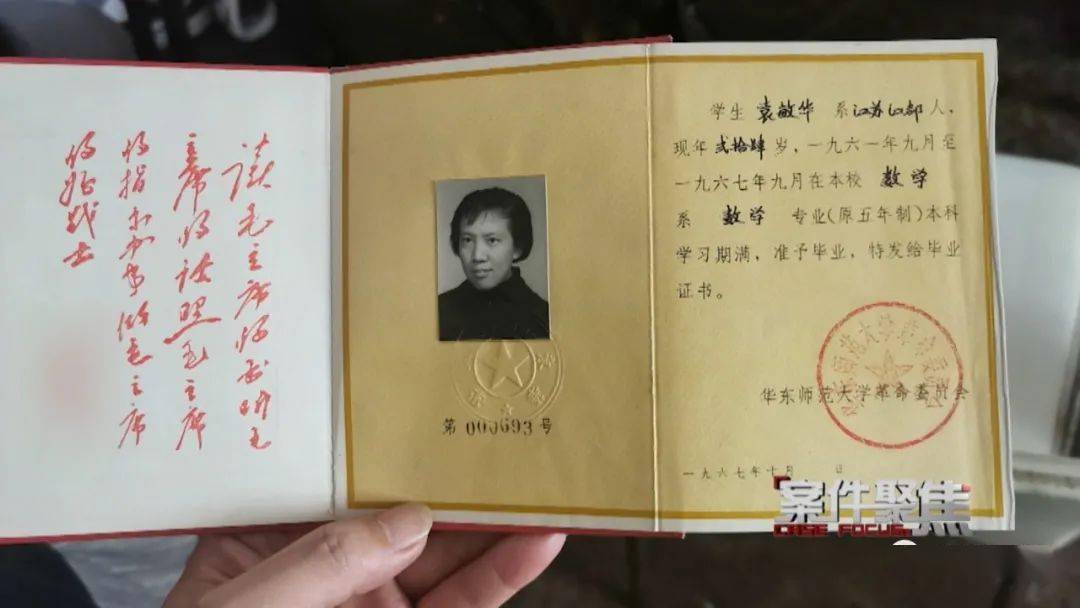 读毛主席的书听毛
主席的话照毛主席
的指示办事做毛主席
的好战士
第 000693 号
学生 袁敏华 系江苏江都人，
现年贰拾肆岁，一九六一年九月至
一九六七年九月在本校 数学
系 数学 专业(原五年制)本科
学习期满，准予毕业，特发给毕业
证书。
华东师范大学革命委员会
华东师范大学革命委员会
一九六七年十月 日
案件聚焦
CASE FOCUS